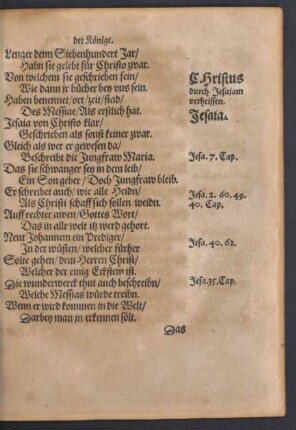 der Könige.
Lenger denn Siebenhundert Jar/
Habn sie gelebt für Christo zwar.
Von welchem sie geschrieben sein/
Wie dann jr bücher bey vns sein.
Haben benennet/ort/zeit/stad/
Des Messiae/Als erstlich hat.
Jesaia von Christo klar/
Geschrieben als sonst keiner zwar.
Gleich als wer er gewesen da/
Beschreibt die Jungfraw Maria.
Das sie schwanger sey in dem leib/
Ein Son geber/Doch Jungfraw bleib.
Er schreibet auch/wie alle Heidn/
Als Christi schaff sich sollen weidn.
Auff rechter awen/Gottes Wort/
Das in allr welt itz werd gehort.
Nent Johannen ein Prediger/
In der wüsten/welcher fürher
Solte gehen/dem Herren Christ/
Welcher der einig Eckstein ist.
Die wunderwerck thut auch beschreibn/
Welche Messias würde treibn.
Wenn er wird kommen in die Welt/
Darbey man jn erkennen sölt.
Das
CHristus
durch Jesaiam
verheissen.
Jesaia.
Jesa. 7. Cap.
Jesa. 2. 60. 49.
40. Cap.
Jesa. 40. 62.
Jesa. 35. Cap.